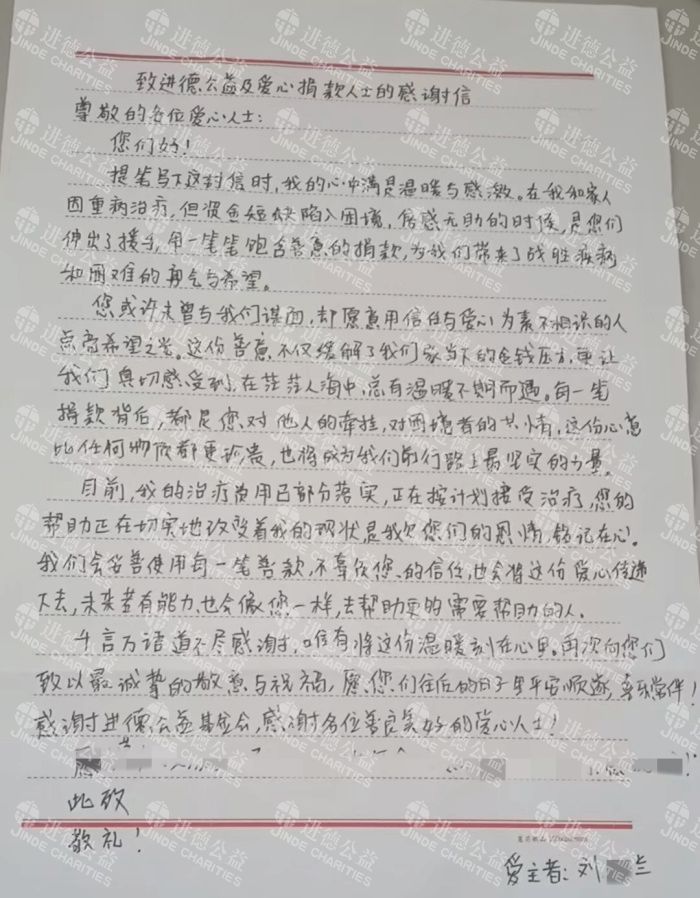 致进德公益及爱心捐款人士的感谢信
尊敬的各位爱心人士：
您们好！
提笔写下这封信时，我的心中满是温暖与感激。在我和家人
因重病治疗，但资金短缺陷入困境，倍感无助的时候，是您们
伸出了援手，用一笔笔饱含善意的捐款，为我们带来了战胜疾病
和困难的勇气与希望。
您或许未曾与我们谋面，却愿意用信任与爱心为素不相识的人
点亮希望之光。这份善意不仅缓解了我们家当下的金钱压力，更让
我们真切感受到，在茫茫人海中，总有温暖不期而遇。每一笔
捐款背后，都是您对他人的牵挂，对困境者的共情，这份心意
比任何物质都更珍贵，也将成为我们前行路上最坚实的力量。
目前，我的治疗费用已部分落实，正在按计划接受治疗，您的
帮助正在切实地改变着我的现状是我欠您们的恩情，铭记在心。
我们会妥善使用每一笔善款，不辜负您的信任，也会将这份爱心传递
下去，未来若有能力，也会像您一样，去帮助更多需要帮助的人。
千言万语道不尽感谢，唯有将这份温暖刻在心里。再次向您们
致以最诚挚的敬意与祝福，愿您们往后的日子里平安顺遂，喜乐常伴！
感谢进德公益基金会，感谢各位善良美好的爱心人士！
此致
敬礼！
受助者：刘 兰
进德公益
JINDE CHARITIES